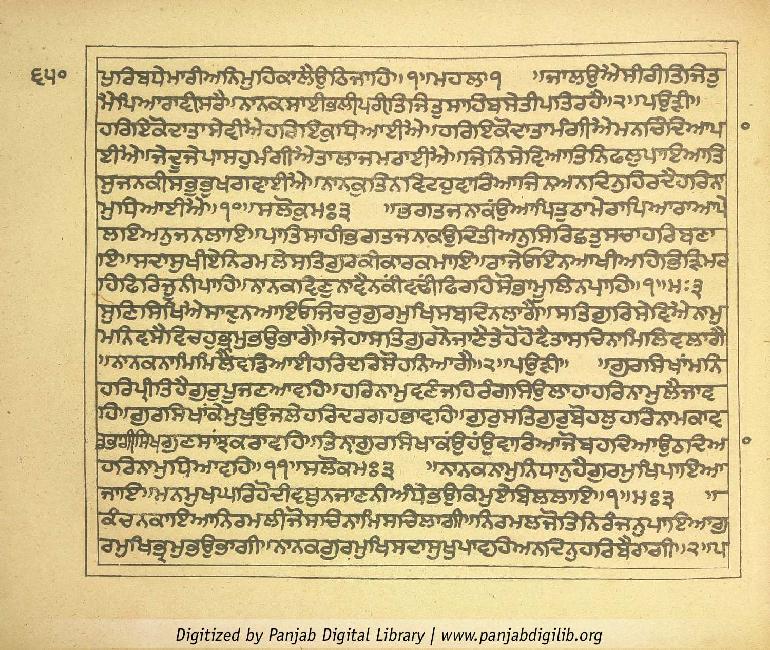 ੬੫੦
ਪੁਰਿਬਧੇਮਾਰੀਅਨਿਮੁਹਿਕਾਲੈਉਠਿਜਾਹਿ॥੧॥ਮਹਲਾ੧ ॥ਜਾਲਉਐਸੀਰੀਤਿਜਿਤੁ
ਮੈਪਿਆਰਾਵੀਸਰੈ॥ਨਾਨਕਸਾਈਭਲੀਪਰੀਤਿਜਿਤੁਸਾਹਿਬਸੇਤੀਪਤਿਰਹੈ॥੨॥ਪਉੜੀ॥
ਹਰਿਇਕੋਦਾਤਾਸੇਵੀਐਹਰਿਇਕੁਧਿਆਈਐ॥ਹਰਿਇਕੋਦਾਤਾਮੰਗੀਐਮਨਚਿੰਦਿਆਪਾ
ਈਐ॥ਜੇਦੂਜੇਪਾਸਹੁਮੰਗੀਐਤਾਲਾਜਮਰਾਈਐ॥ਜਿਨਿਸੇਵਿਆਤਿਨਿਫਲੁਪਾਇਆਤਿ
ਸੁਜਨਕੀਸਭਭੁਖਗਵਾਈਐ॥ਨਾਨਕੁਤਿਨਵਿਟਹੁਵਾਰਿਆਜਿਨਅਨਦਿਨੁਹਿਰਦੈਹਰਿਨਾ
ਮੁਧਿਆਈਐ॥੧੦॥ਸਲੋਕੁਮਃ੩ ॥ਭਗਤਜਨਾਕੰਉਆਪਿਤੁਠਾਮੇਰਾਪਿਆਰਾਆਪੇ
ਲਾਇਅਨੁਜਨਲਾਇ॥ਪਾਤਿਸਾਹੀਭਗਤਜਨਾਕਉਦਿਤੀਅਨੁਸਿਰਿਛਤੁਸਚਾਹਰਿਬਣਾ
ਇ॥ਸਦਾਸੁਖੀਏਨਿਰਮਲੇਸਤਿਗੁਰਕੀਕਾਰਕਮਾਇ॥ਰਾਜੇਓਇਨਆਖੀਅਹਿਭਿੜਿਮਰ
ਹਿਫਿਰਿਜੂਨੀਪਾਹਿ॥ਨਾਨਕਵਿਣੁਨਾਵੈਨਕੀਂਵਢੀਂਫਿਰਹਿਸੋਭਾਮੂਲਿਨਪਾਹਿ॥੧॥ਮਃ੩
ਸੁਣਿਸਿਖਿਐਸਾਦੁਨਆਇਓਜਿਚਰੁਗੁਰਮੁਖਿਸਬਦਿਨਲਾਗੈ॥ਸਤਿਗੁਰਿਸੇਵਿਐਨਾਮੁ
ਮਨਿਵਸੈਵਿਚਹੁਭ੍ਰਮੁਭਉਭਾਗੈ॥ਜੇਹਾਸਤਿਗੁਰਨੋਜਾਣੈਤੇਹੋਹੋਵੈਤਾਸਚਿਨਾਮਿਲਿਵਲਾਗੈ
॥ਨਾਨਕਨਾਮਿਮਿਲੈਵਡਿਆਈਹਰਿਦਰਿਸੋਹਨਿਆਗੈ॥੨॥ਪਉੜੀ॥ ॥ਗੁਰਸਿਖਾਂਮਨਿ
ਹਰਿਪ੍ਰੀਤਿਹੈਗੁਰੁਪੂਜਣਆਵਹਿ॥ਹਰਿਨਾਮੁਵਣੰਜਹਿਰੰਗਸਿਉਲਾਹਾਹਰਿਨਾਮੁਲੈਜਾਵ
ਹਿ॥ਗੁਰਸਿਖਾਕੇਮੁਖਉਜਲੇਹਰਿਦਰਗਹਭਾਵਹਿ॥ਗੁਰੁਸਤਿਗੁਰੁਬੋਹਲੁਹਰਿਨਾਮਕਾਵ
ਡਭਾਗੀਸਿਖਗੁਣਸਾਂਝਕਰਾਵਹਿ॥ਤਿਨਾਗੁਰਸਿਖਾਕੰਉਹੰਉਵਾਰਿਆਜੋਬਹਦਿਆਉਠਦਿਆ
ਹਰਿਨਾਮੁਧਿਆਵਹਿ॥੧੧॥ਸਲੋਕਮਃ੩ ॥ਨਾਨਕਨਾਮੁਨਿਧਾਨੁਹੈਗੁਰਮੁਖਿਪਾਇਆ
ਜਾਇ॥ਮਨਮੁਖਘਰਿਹੋਦੀਵਥੁਨਜਾਣਨੀਅੰਧੇਭਉਕਿਮੁਏਬਿਲਲਾਇ॥੧॥ਮਃ੩ ॥
ਕੰਚਨਕਾਇਆਨਿਰਮਲੀਜੋਸਚਿਨਾਮਿਸਚਿਲਾਗੀ॥ਨਿਰਮਲਜੋਤਿਨਿਰੰਜਨੁਪਾਇਆਗੁ
ਰਮੁਖਿਭ੍ਰਮੁਭਉਭਾਗੀ॥ਨਾਨਕਗੁਰਮੁਖਿਸਦਾਸੁਖੁਪਾਵਹਿਅਨਦਿਨੁਹਰਿਬੈਰਾਗੀ॥੨॥ਪ
Digitized by Panjab Digital Library | www.panjabdigilib.org